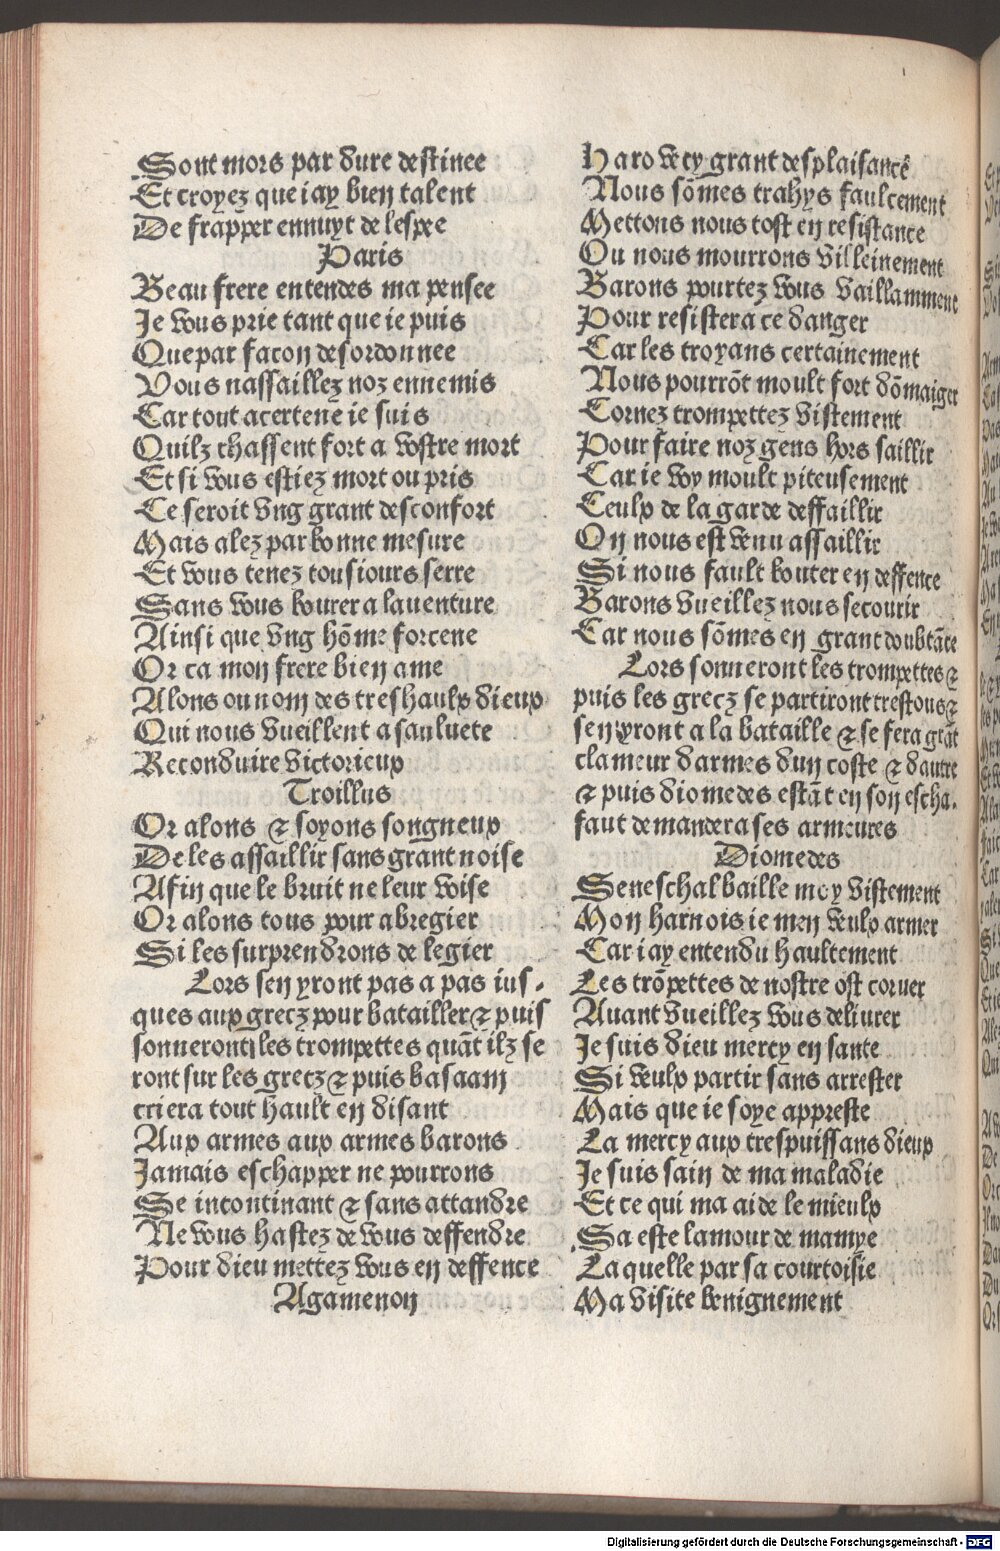 Sont mors par dure destinee
Et croyez que iay bien talent
De frapper ennuyt de lespee
Paris
Beau frere entendes ma pensee
Je vous prie tant que ie puis
Que par facon desordonnee
Vous nassaillez noz ennemis
Car tout acertene ie suis
Quilz chassent fort a vostre mort
Et si vous estiez mort ou pris
Ce seroit vng grant desconfort
Mais alez par bonne mesure
Et vous tenez tousiours serre
Sans vous bourer a lauenture
Ainsi que vng hõme forcene
Or ca mon frere bien ame
Alons ou nom des treshaulx dieux
Qui nous vueillent a sauluete
Reconduire victorieux
Troillus
Or alons ⁊ soyons songneux
De les assaillir sans grant noise
Afin que le bruit ne leur voise
Or alons tous pour abregier
Si les surprendrons de legier
Lors sen yront pas a pas ius-
ques aux grecz pour batailler ⁊ puis
sonneront les trompettes quãt ilz se
ront sur les grecz ⁊ puis basaam
criera tout hault en disant
Aux armes aux armes barons
Jamais eschapper ne pourrons
Se incontinant ⁊ sans attandre
Ne vous hastez de vous deffendre
Pour dieu mettez vous en deffence
Agamenon
Haro vecy grant desplaisance
Nous sõmes trahys faulcement
Mettons nous tost en resistance
Ou nous mourrons villeinement
Barons pourtez vous vaillamment
Pour resister a ce danger
Car les troyans certainement
Nous pourrõt moult fort dõmaiger
Cornez trompettez vistement
Pour faire noz gens hors saillir
Car ie voy moult piteusement
Ceulx de la garde deffaillir
On nous est venu assaillir
Si nous fault bouter en deffence
Barons vueillez nous secourir
Car nous sõmes en grant doubtãce
Lors sonneront les trompettes ⁊
puis les grecz se partiront trestous ⁊
sen yront a la bataille ⁊ se fera grãt
clameur darmes dun coste ⁊ dautre
⁊ puis diomedes estãt en son escha-
faut demandera ses armeures
Diomedes
Seneschal baille moy vistement
Mon harnois ie men veulx armer
Car iay entendu haultement
Les trõpettes de nostre ost corner
Auant vueillez vous deliurer
Je suis dieu mercy en sante
Si veulx partir sans arrester
Mais que ie soye appreste
La mercy aux trespuissans dieux
Je suis sain de ma maladie
Et ce qui ma aide le mieulx
Sa este lamour de mamye
La quelle par sa courtoisie
Ma visite benignement
Digitalisierung gefördert durch die Deutsche Forschungsgemeinschaft - DFG